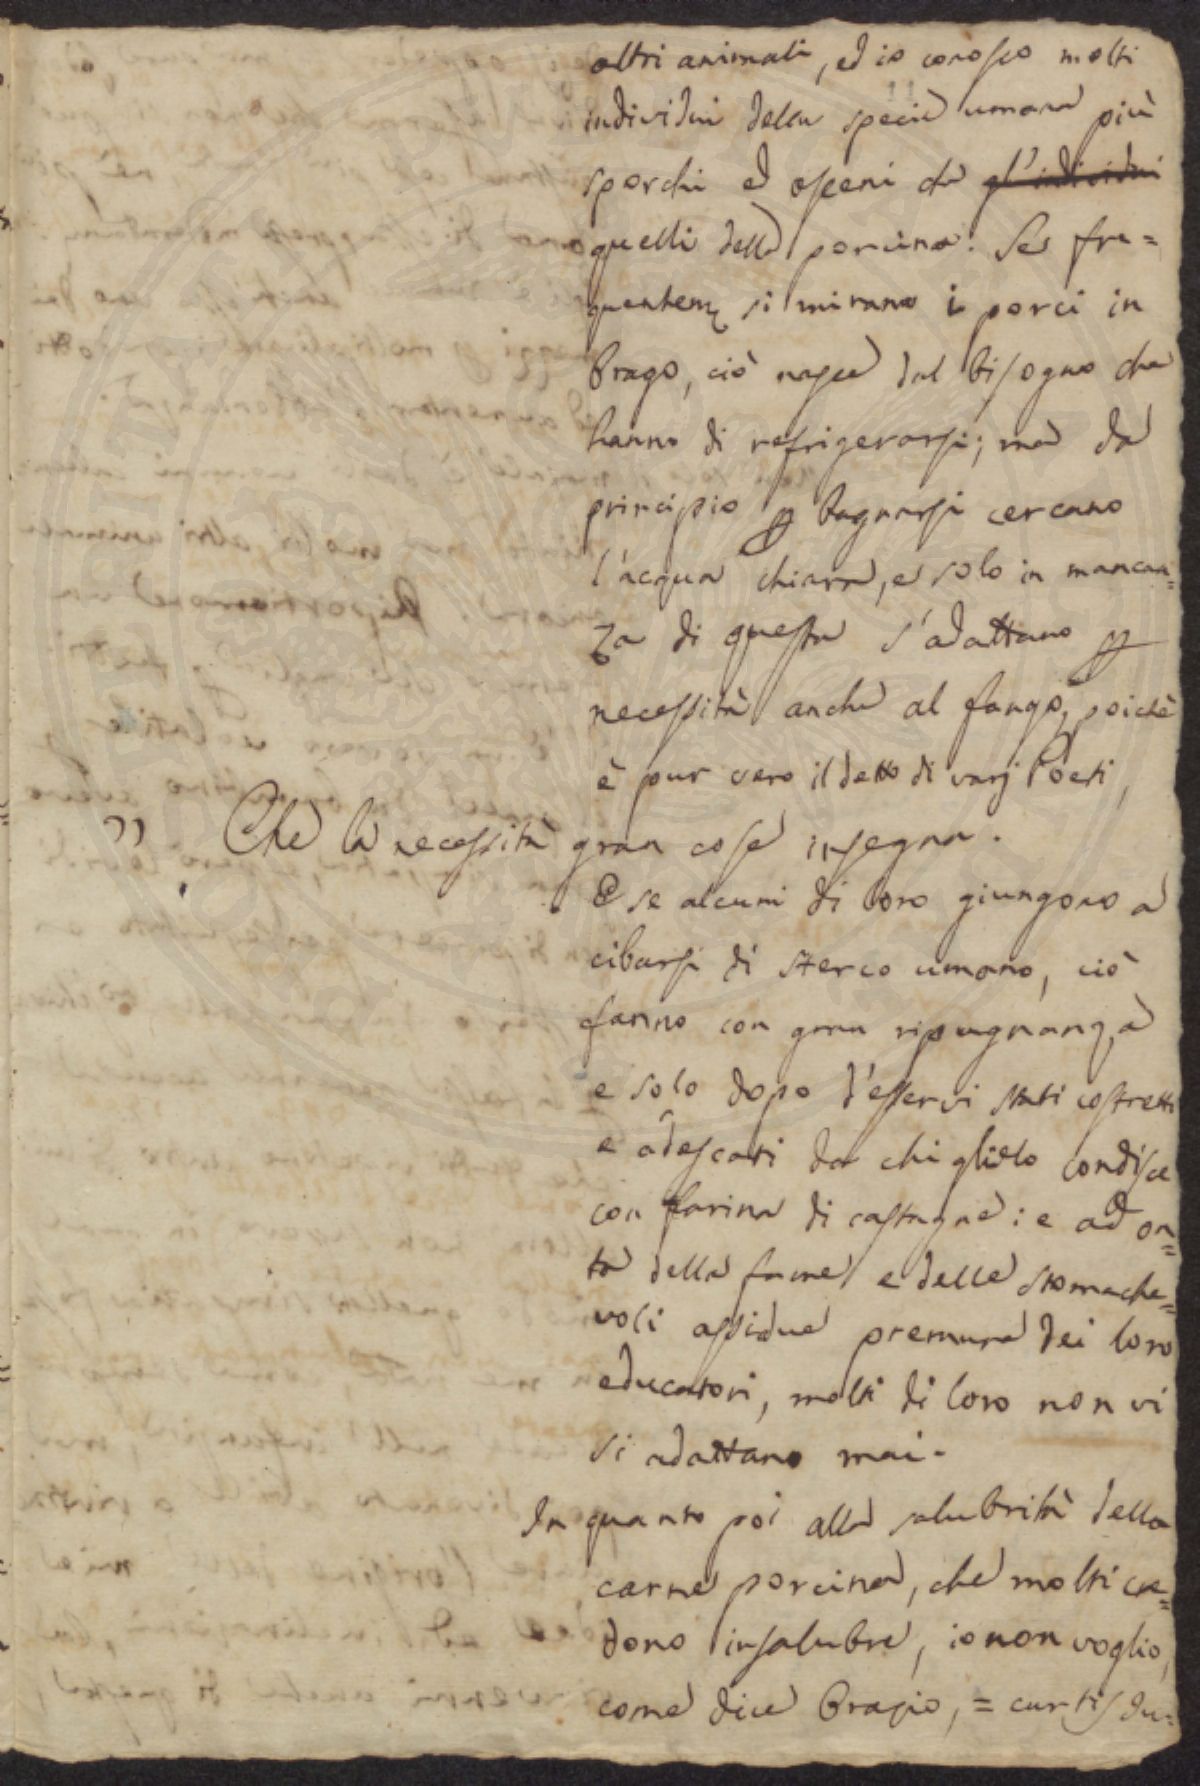 altri animali, ed io conosco molti
individui della specie umana più
sporchi ed osceni che gl'individui
quelli della porcina. Se fre=
quentem. si mirano i porci in
brago, ciò nasce dal bisogno che
hanno di refrigerarsi; ma da
principio p bagnarsi cercano
l'acqua chiara, e solo in mancan=
za di questa s'adattano p
necessità anche al fango, poichè
è pur vero il detto di varj Poeti,
" Che la necessità gran cose insegna.
E se alcuni di loro giungono a
cibarsi di sterco umano, ciò
fanno con gran ripugnanza
e solo dopo d'esservi stati costretti
e adescati da chi glielo condisce
con farina di castagne: e ad on=
ta della fame e delle stomache=
voli assidue premure dei loro
educatori, molti di loro non vi
si adattano mai.
In quanto poi alla salubrità della
carne porcina, che molti cre=
dono insalubre, io non voglio,
come dice Orazio, = curtis Ju=